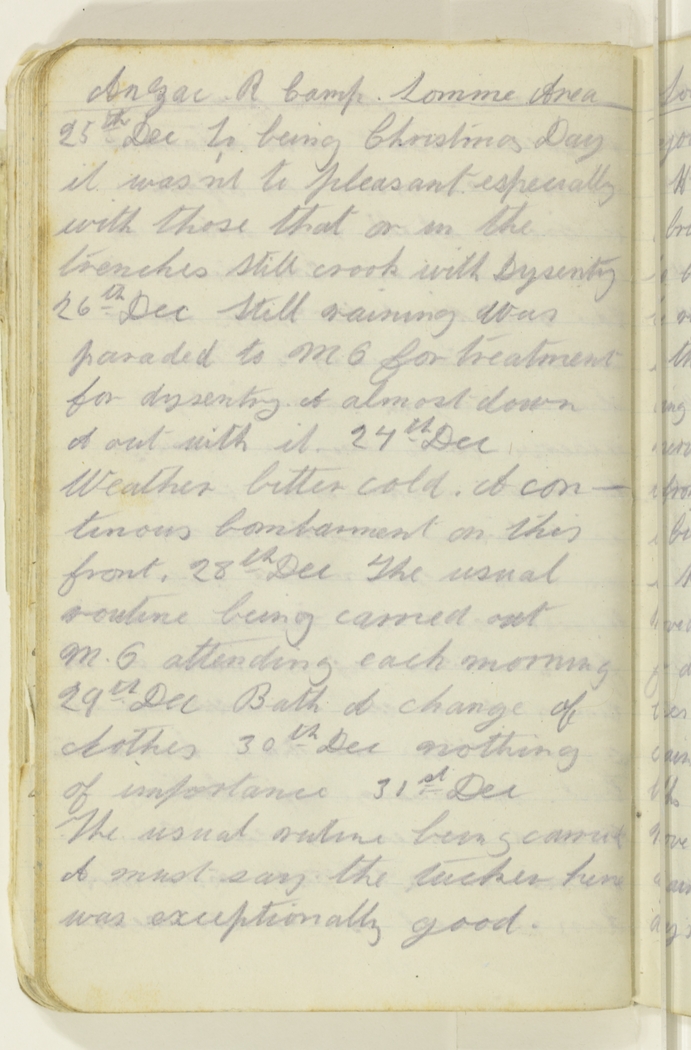 Anzac R Camp. Somme Area
25th Dec To being Christmas Day
it was n't to pleasant especially
with those that or in the
trenches still crook with Dysentry
26th Dec Still raining Was
paraded to M O for treatment
for dysentry. & almost down
& out with it. 27th Dec
Weather bitter cold. A con-
tinous bombarment on this
front. 28th Dec The usual
routine being carried out
M. O attending each morning
29th Dec Bath & change of
clothes 30th Dec nothing
of importance 31st Dec
The usual rutine being carried
& must say the tucker here
was exceptionally good.